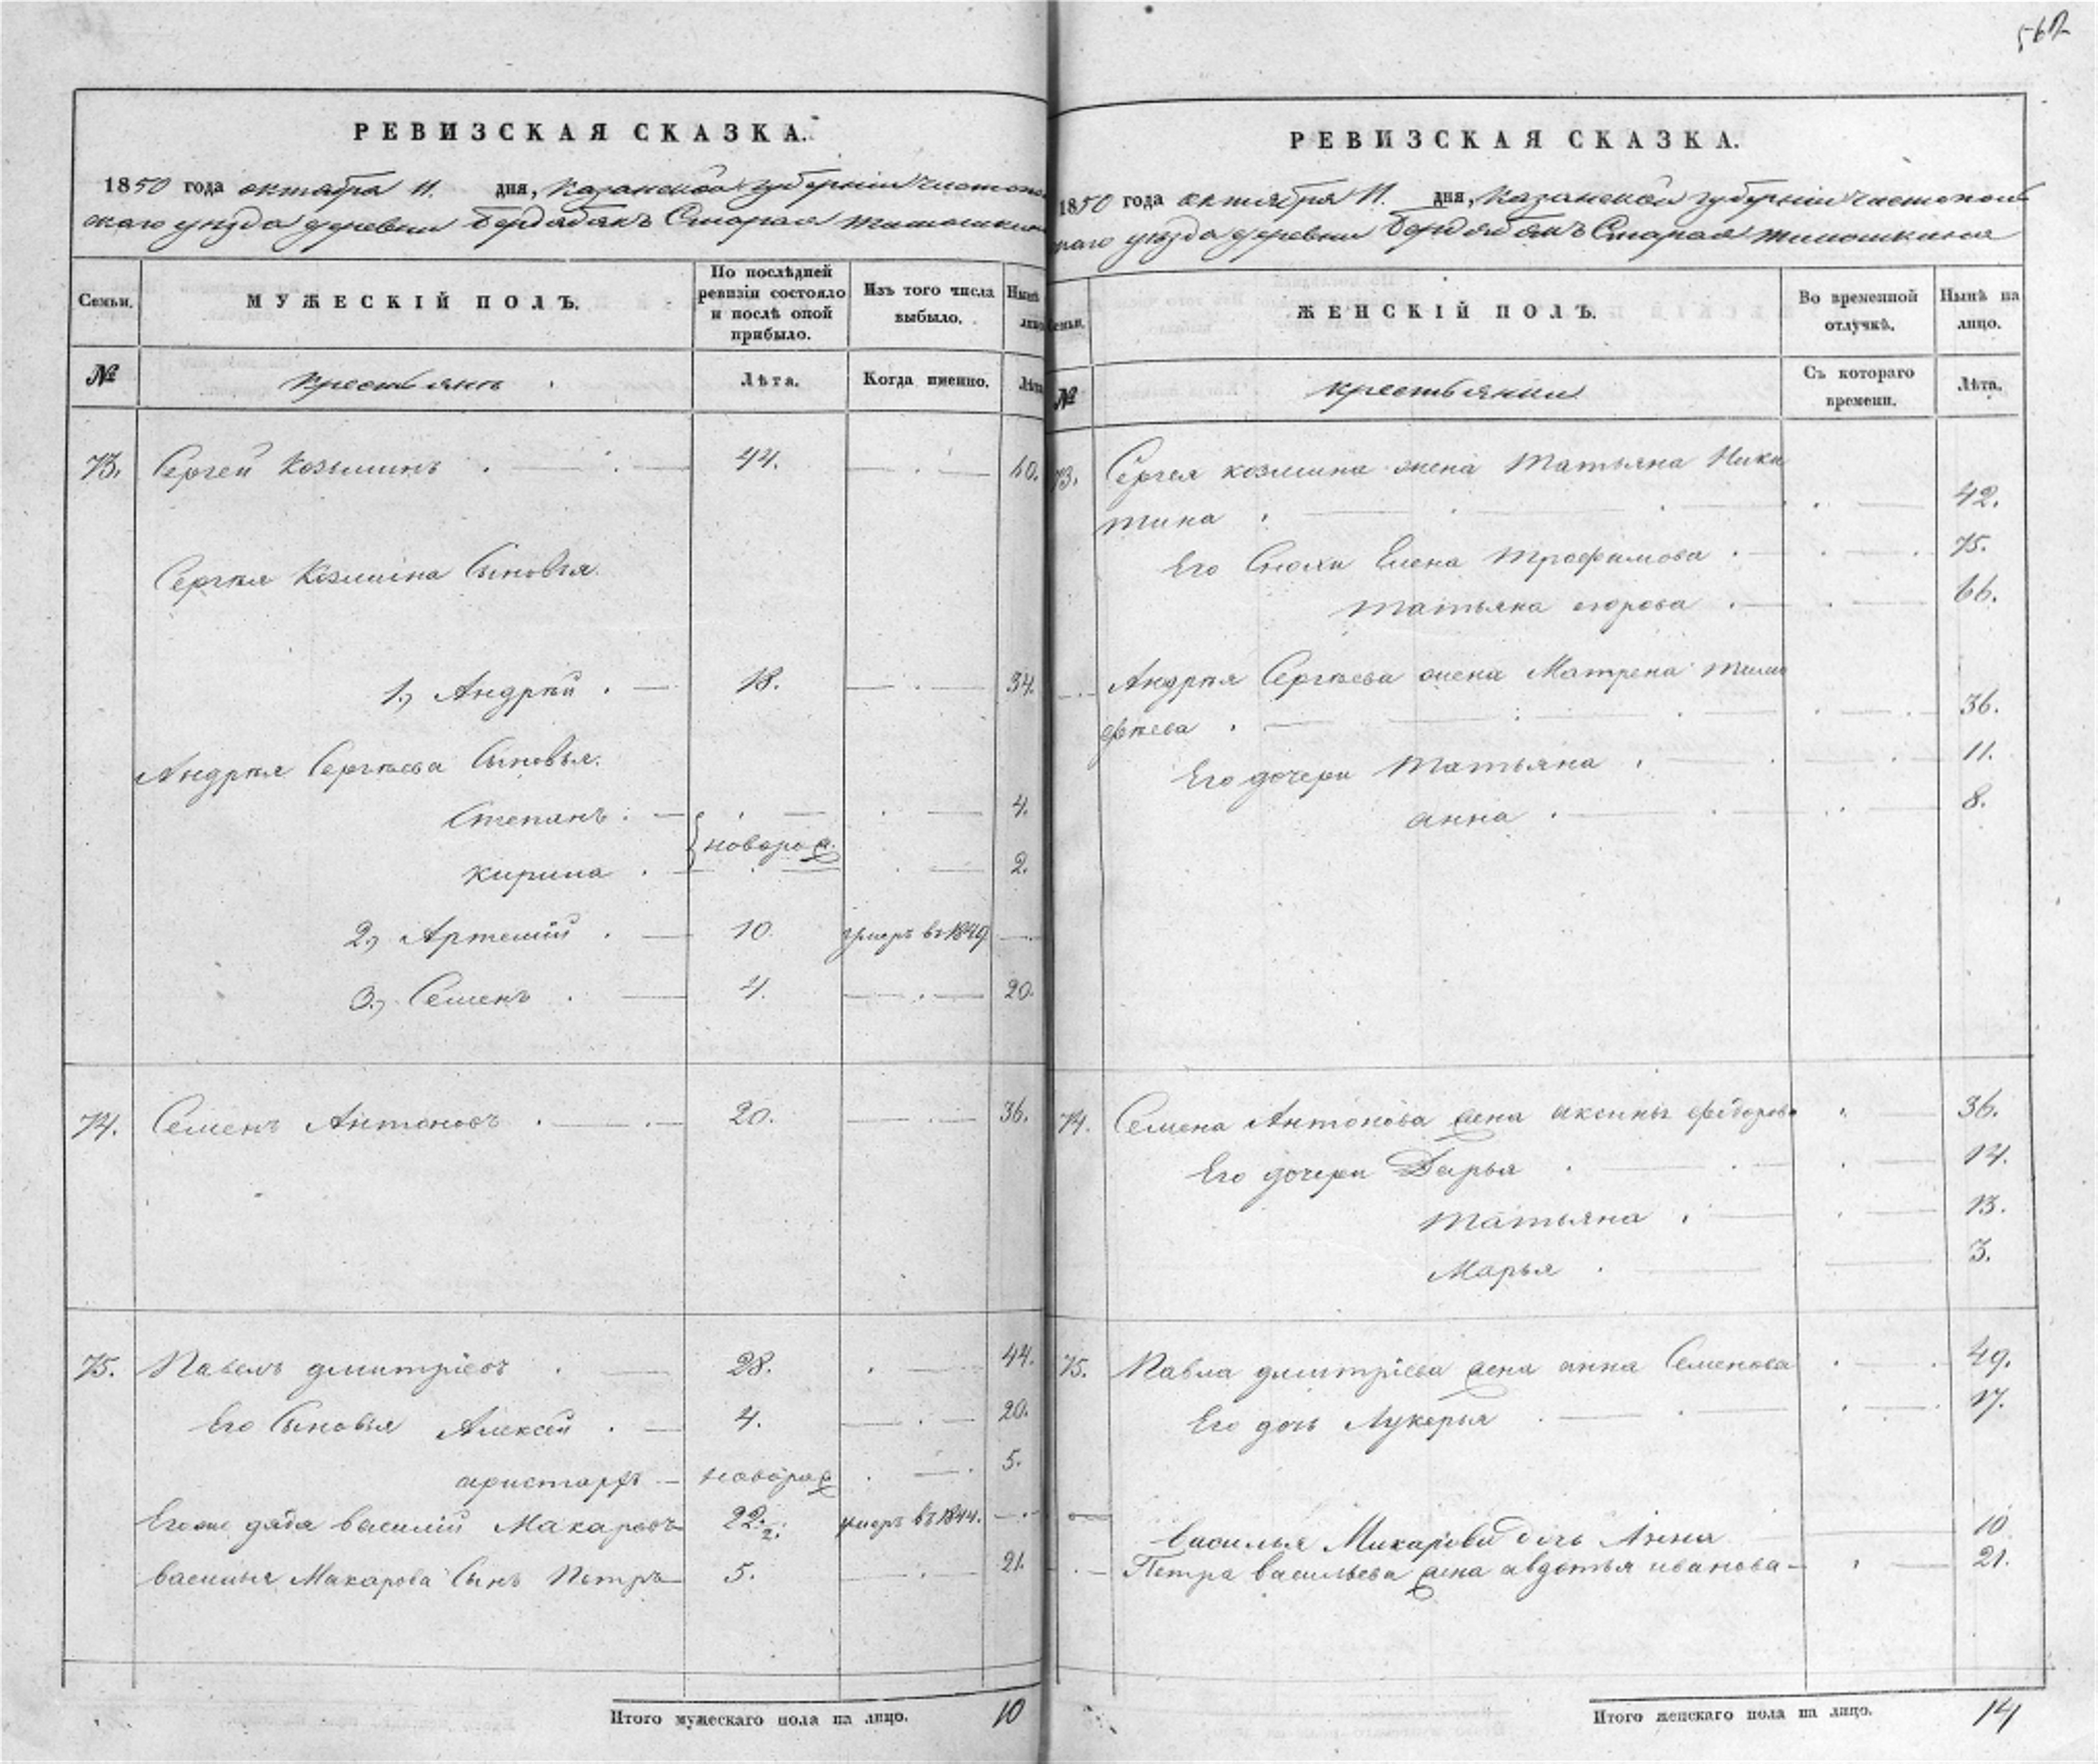 562
РЕВИЗСКАЯ СКАЗКА.
1850 года октября 11. дня, Казанской губерніи чистополь
скаго уезда деревни Бердебякъ Старая тимошкина
Семьи. МУЖЕСКІЙ ПОЛЪ. По послѣдней ревизіи состояло и послѣ оной прибыло. Изъ того числа выбыло. Нынѣ лицо
№ крестьянъ Лѣта. Когда именно. Лѣта
73. Сергей Козьминъ 44. 60.
Сергѣя Козмина Сыновья.
1., Андрѣй 18. 34.
Андрѣя Сергѣева Сыновья.
Степанъ 4.
новорож.
Кирила 2.
2., Артемий 10. умеръ въ 1849
3., Семенъ 4. 20.
74. Семенъ Антоновъ 20. 36.
75. Павелъ дмитріевъ 28. 44.
Его Сыновья Алексей 4. 20.
аристархъ новорож 5.
Егоже дядя василій Макаровъ 22.½. умеръ въ 1844.
василья Макарова Сынъ Петръ 5. 21.
Итого мужескаго пола на лицо. 10
РЕВИЗСКАЯ СКАЗКА.
1850 года октября 11. дня, Казанской губерніи чистополь
скаго уезда деревни Бердебякъ Старая тимошкина
Семьи. ЖЕНСКІЙ ПОЛЪ. Во временной отлучкѣ. Нынѣ на лицо.
№ крестьянки Съ котораго времени. Лѣта.
73. Сергея козмина жена Татьяна Ники
тина 42.
Его Снохи Елена трофимова 75.
татьяна егорова 66.
Андрѣя Сергѣева жена Матрена тимо
фѣева 36.
Его дочери Татьяна 11.
анна 8.
74. Семена Антонова жена аксинья федорова 36.
Его дочери Дарья 14.
татьяна 13.
Марья 3.
75. Павла дмитріева жена анна Семенова 49.
Его дочь Лукерья 17.
василья Макарова дочь Анна 10
Петра васильева жена авдотья иванова 21.
Итого женскаго пола на лицо. 14